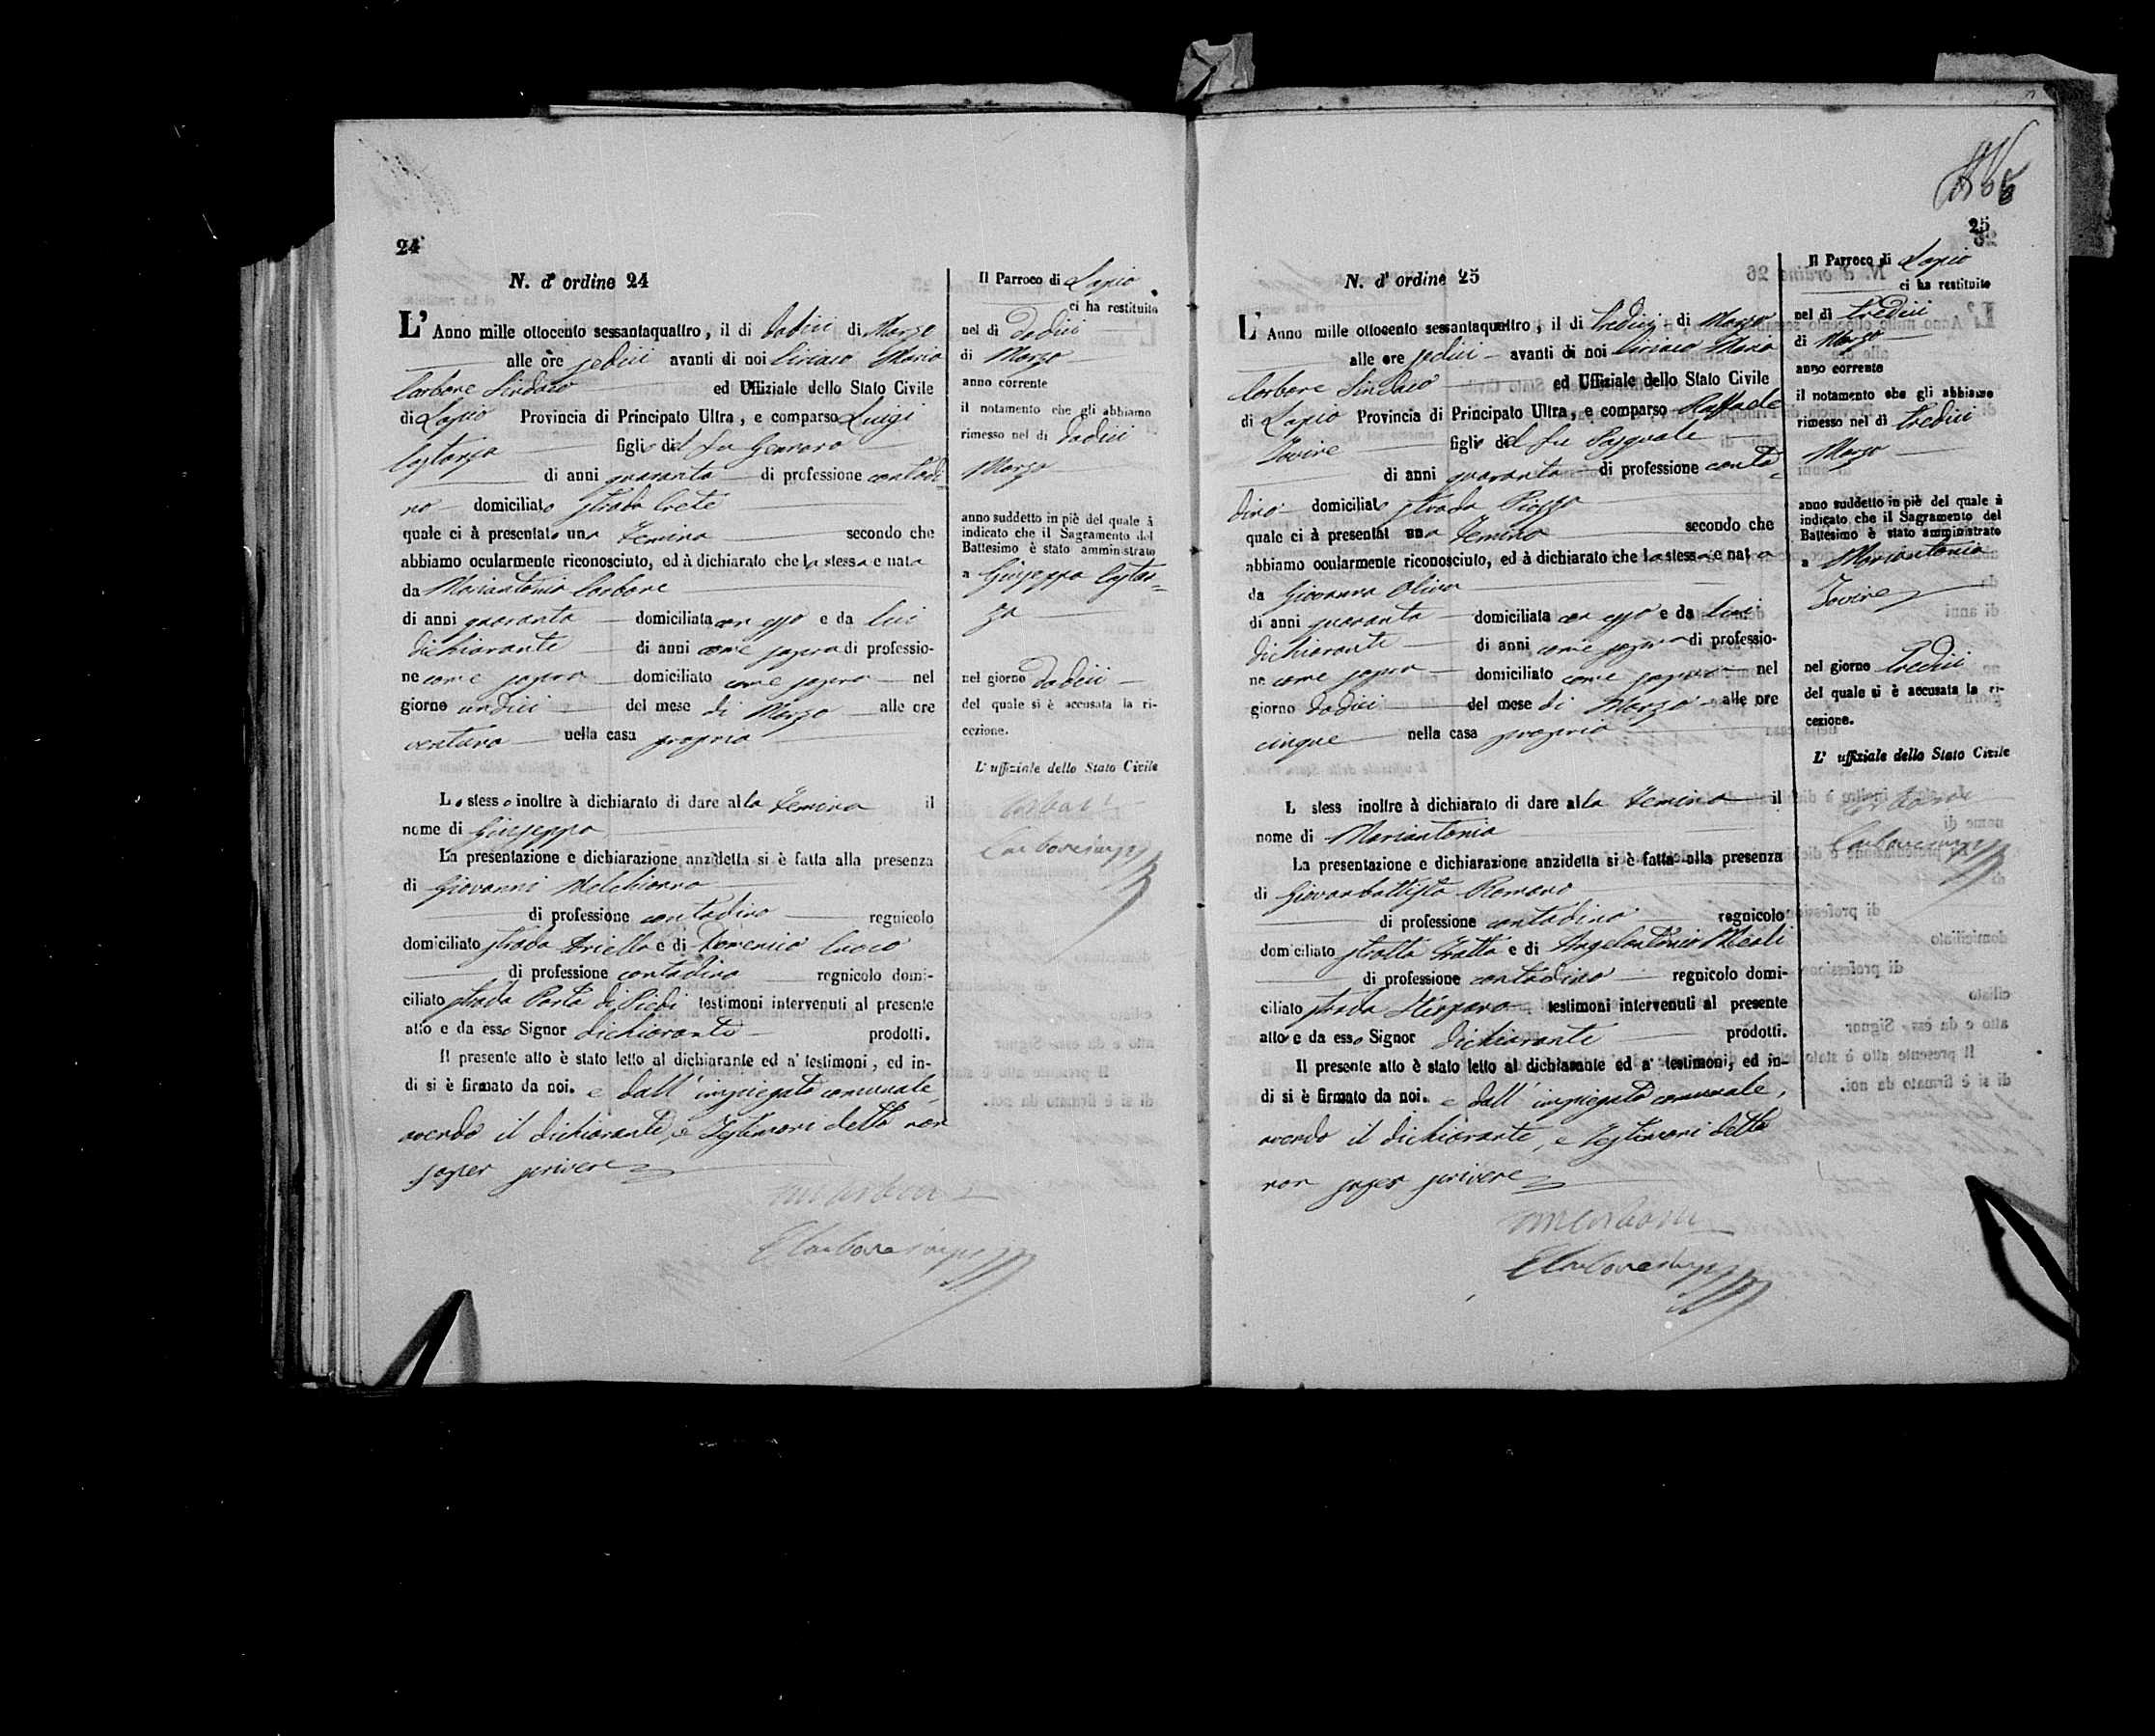 24
N. d' ordine 24
L' Anno mille ottocento sessantaquattro, il di dodici di Marzo
alle ore sedici avanti di noi Ciriaco Maria
Carbone Sindaco ed Uffiziale dello Stato Civile
di Lapio Provincia di Principato Ultra, e comparso Luigi
Costanza figlio del fu Gennaro
di anni quaranta di professione contadi
no domiciliato strada Crete
quale ci à presentato una Femina secondo che
abbiamo ocularmente riconosciuto, ed à dichiarato che la stessa e nata
da Mariantonia Carbone
di anni quaranta domiciliata con esso e da lui
dichiarante di anni come sopra di professio-
ne come sopra domiciliato come sopra nel
giorno undici del mese di Marzo alle ore
ventuno nella casa propria
Lo stesso inoltre à dichiarato di dare alla Femina il
nome di Giuseppa
La presentazione e dichiarazione anzidetta si è fatta alla presenza
di Giovanni Melchionna
di professione contadino regnicolo
domiciliato strada Ariella e di Domenico Cuoco
di professione contadino regnicolo domi-
ciliato strada Porta di Piedi testimoni intervenuti al presente
atto e da esso Signor dichiarante prodotti.
Il presente atto è stato letto al dichiarante ed a' testimoni, ed in-
di si è firmato da noi. e dall' impiegato comunale,
avendo il dichiarante, e testimoni detto non
saper scrivere
Il Parroco di Lapio
ci ha restituito
nel di dodici
di Marzo
anno corrente
il notamento che gli abbiamo
rimesso nel di dodici
Marzo
anno suddetto in piè del quale à
indicato che il Sagramento del
Battesimo è stato amministrato
a Giuseppa Costan=
za
nel giorno dodici
del quale si è accusata la ri-
cezione.
L' uffiziale dello Stato Civile
25
N. d' ordine 25
L' Anno mille ottocento sessantaquattro, il di tredici di Marzo
alle ore sedici avanti di noi Ciriaco Maria
Carbone Sindaco ed Uffiziale dello Stato Civile
di Lapio Provincia di Principato Ultra, e comparso Raffaele
Iovine figlio del fu Pasquale
di anni quaranta di professione conta
dino domiciliato strada Piazza
quale ci à presentat una Femina secondo che
abbiamo ocularmente riconosciuto, ed à dichiarato che la stessa e nata
da Giovanna Oliva
di anni quaranta domiciliata con esso e da lui
dichiarante di anni come sopra di professio-
ne come sopra domiciliato come sopra nel
giorno dodici del mese di Marzo alle ore
cinque nella casa propria
L stess inoltre à dichiarato di dare alla Femina il
nome di Mariantonia
La presentazione e dichiarazione anzidetta si è fatta alla presenza
di Giovanbattista Romano
di professione contadino regnicolo
domiciliato strada Fratta e di Angelantonio Meoli
di professione contadino regnicolo domi-
ciliato strada testimoni intervenuti al presente
atto e da esso Signor dichiarante prodotti.
Il presente atto è stato letto al dichiarante ed a' testimoni, ed in-
di si è firmato da noi. e dall' impiegato comunale,
avendo il dichiarante, e testimoni detto
non saper scrivere
Il Parroco di Lapio
ci ha restituito
nel di tredici
di Marzo
anno corrente
il notamento che gli abbiamo
rimesso nel di tredici
Marzo
anno suddetto in piè del quale à
indicato che il Sagramento del
Battesimo è stato amministrato
a Mariantonia
Iovine
nel giorno tredici
del quale si è accusata la ri-
cezione.
L' uffiziale dello Stato Civile